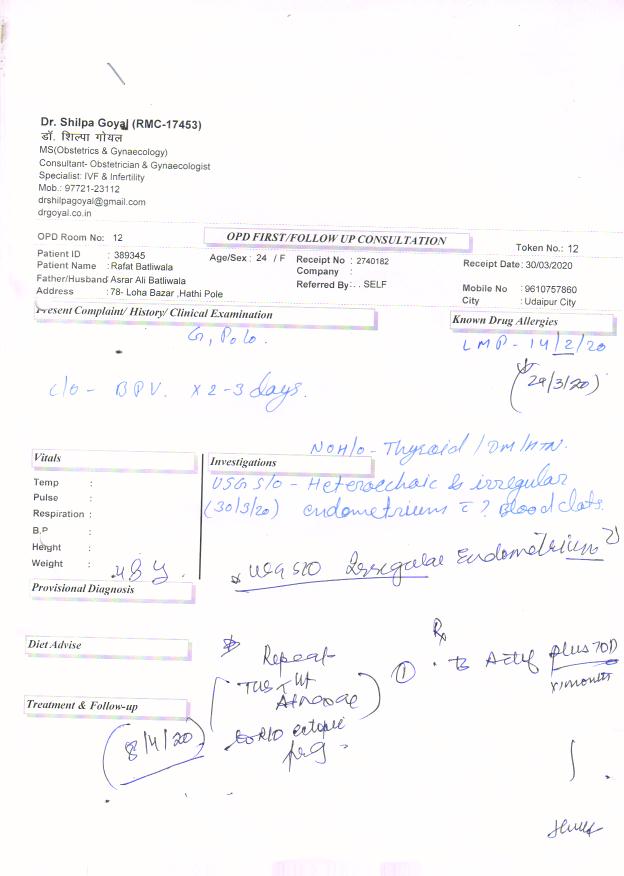 Dr. Shilpa Goyal (RMC-17453)
डॉ. शिल्पा गोयल
MS(Obstetrics & Gynaecology)
Consultant- Obstetrician & Gynaecologist
Specialist: IVF & Infertility
Mob.: 97721-23112
drshilpagoyal@gmail.com
drgoyal.co.in
OPD Room No: 12
OPD FIRST/FOLLOW UP CONSULTATION
Token No.: 12
Patient ID : 389345
Age/Sex : 24 / F
Receipt No : 2740182
Receipt Date: 30/03/2020
Patient Name : Rafat Batliwala
Company :
Father/Husband Asrar Ali Batliwala
Referred By: . . SELF
Mobile No : 9610757860
Address : 78- Loha Bazar ,Hathi Pole
City : Udaipur City
Present Complaint/ History/ Clinical Examination
Known Drug Allergies
G1 P0 L0.
LMP - 14/2/20
(29/3/20)
c/o - BPV. x 2-3 days.
NOH/o - Thyroid / DM/HTN.
Vitals
Investigations
Temp :
USG S/O - Heteroechoic & irregular
Pulse :
(30/3/20) endometrium c̄ ? Blood clots.
Respiration :
B.P :
Height :
Weight : 48 y.
USG S/O Irregular Endometrium
Provisional Diagnosis
Rx
Diet Advise
Repeat
① Plus 70D
TUS
Treatment & Follow-up
8/4/20
R/O ectopic
preg.